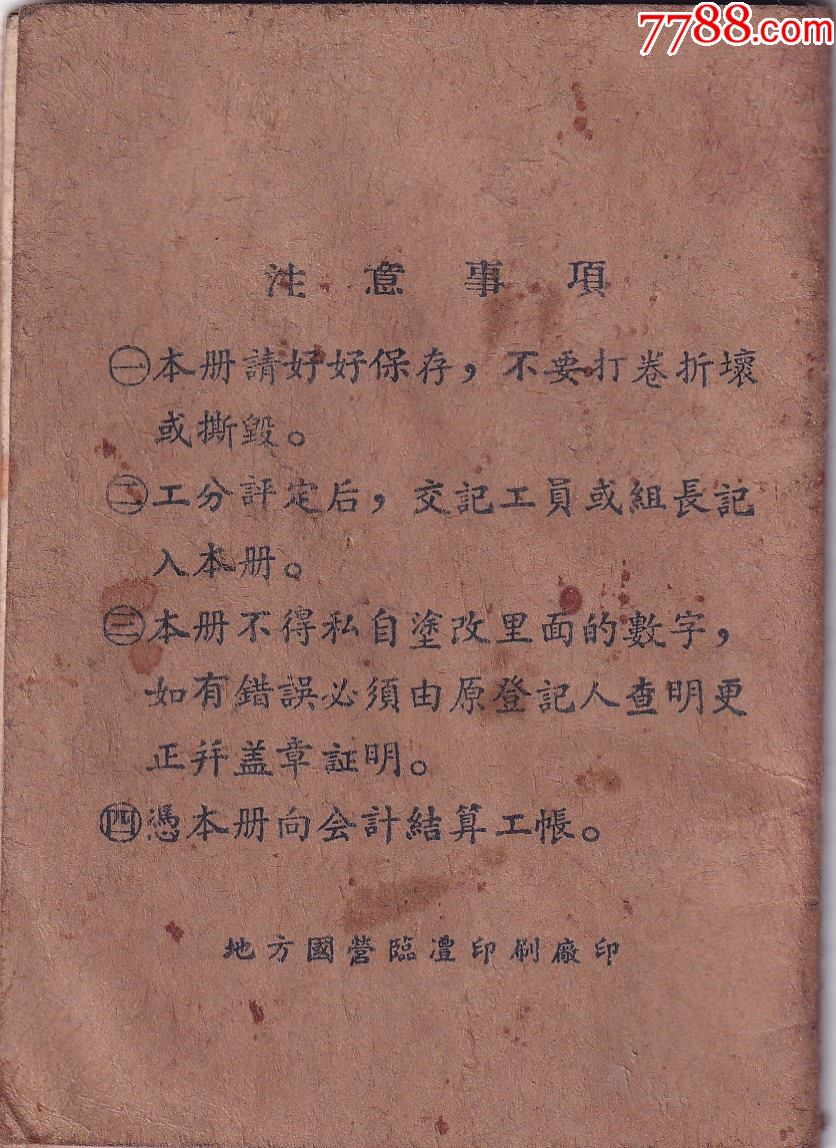 7788.com
注意事項
㊀本册請好好保存，不要打卷折壞
或撕毀。
㊁工分評定后，交記工員或組長記
入本册。
㊂本册不得私自塗改里面的數字，
如有錯誤必須由原登記人查明更
正幷盖章証明。
㊃憑本册向会計結算工帳。
地方國营臨澧印刷廠印